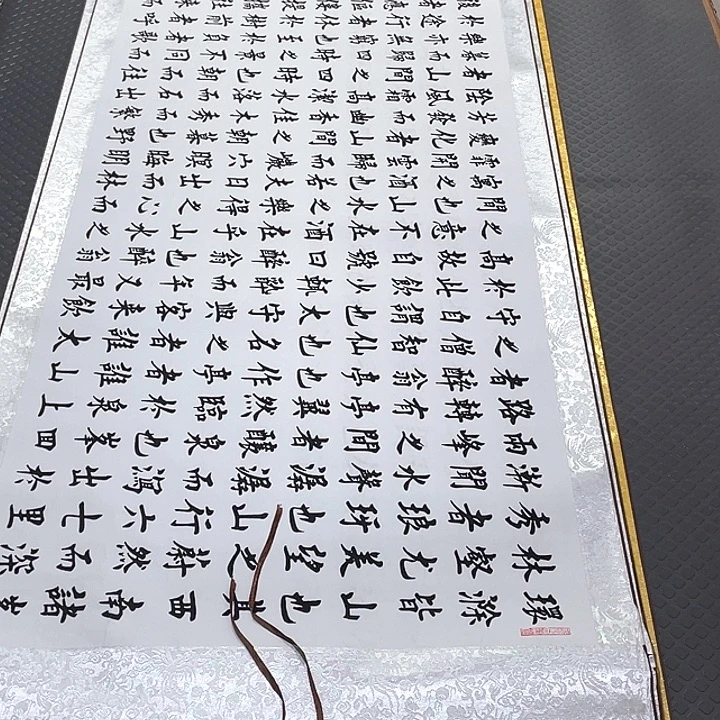 環滁皆山也其西南諸峯
林壑尤美望之蔚然而深
秀者琅玡也山行六七里
漸聞水聲潺潺而瀉出於
兩峰之間者釀泉也峯回
路轉有亭翼然臨於泉上
者醉翁亭也作亭者誰山
之僧智仙也名之者誰太
守自謂也太守與客來飲
於此飲少輒醉而年又最
高故自號曰醉翁也醉翁
之意不在酒在乎山水之
間也山水之樂得之心而
寓之酒也若夫日出而林
霏開雲歸而巖穴暝晦明
變化者山間之朝暮也野
芳發而幽香佳木秀而繁
陰風霜高潔水落石出
者山間之四時也朝而往
暮而歸四時之景不同而
樂亦無窮也至於負者歌
於途行者休於樹前者呼